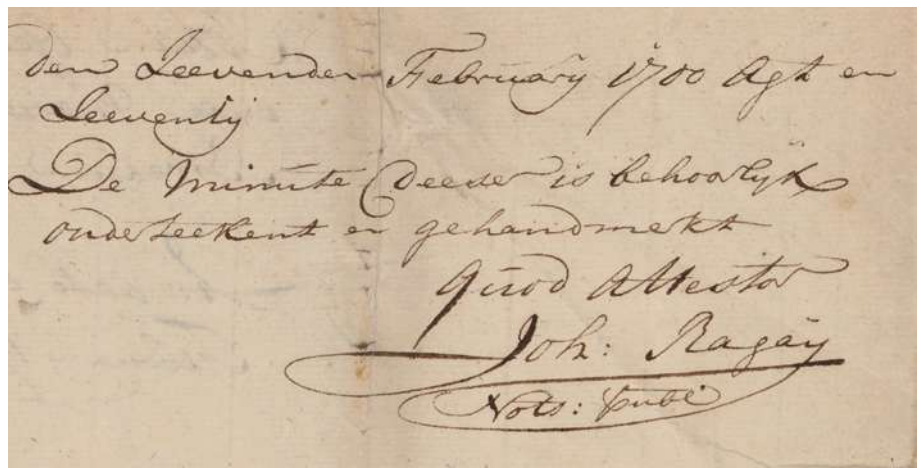 den Seevenden February 1700 Agt en
Seeventij
De Minute deeser is behoorlijk
onderteekent en gehandmerkt
quod Attestor
Joh: Ragaÿ
Nots: Publ: